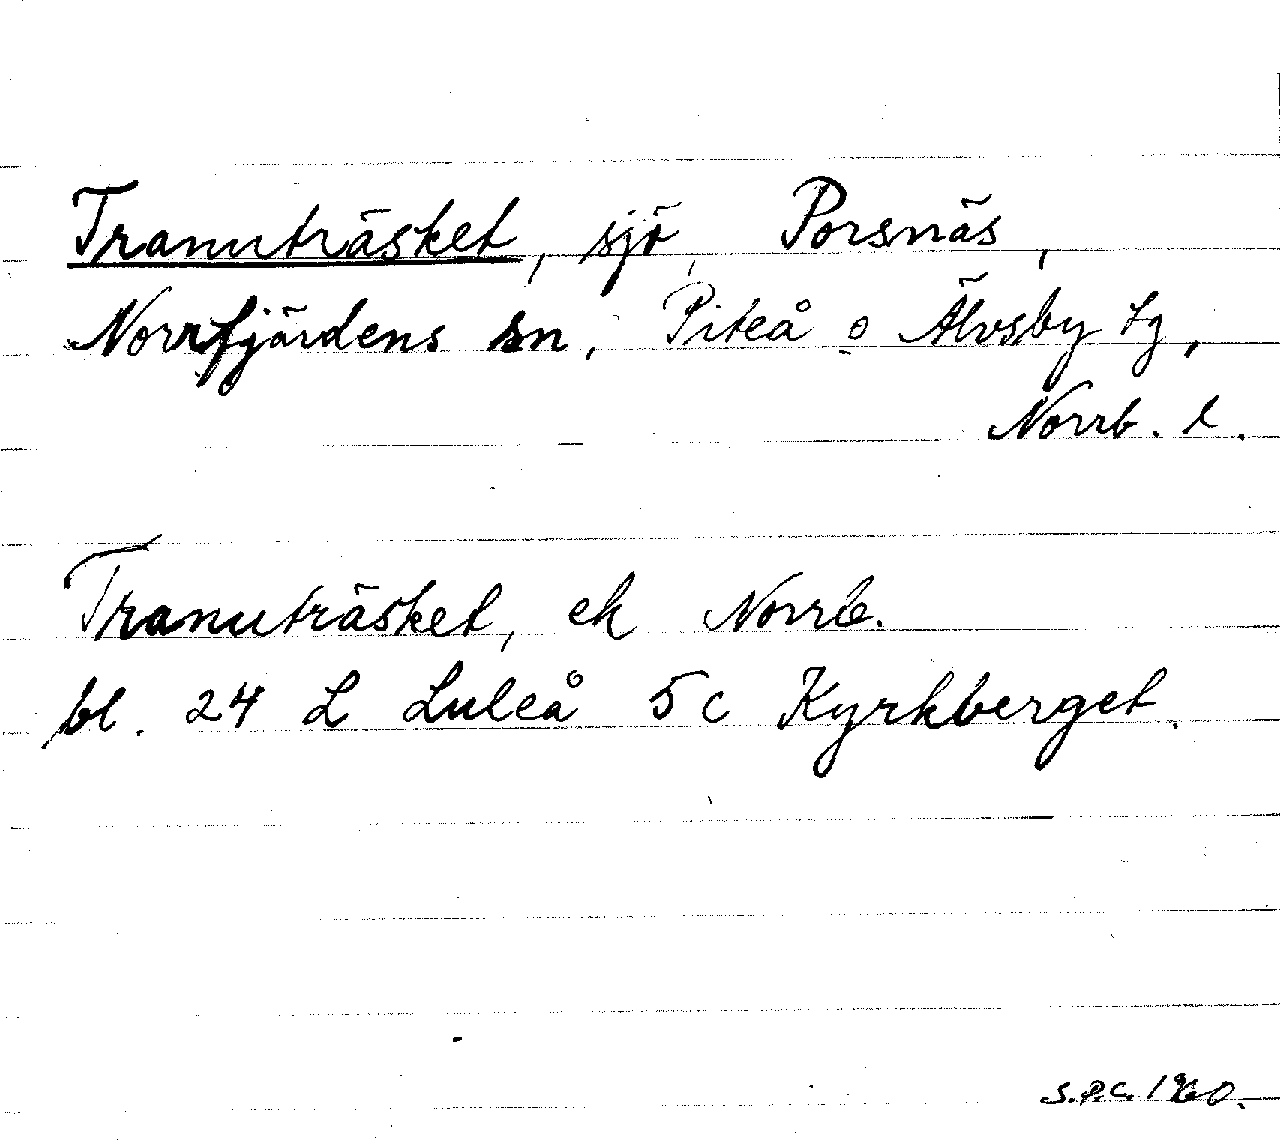 Tranuträsket, sjö, Porsnäs,
Norrfjärdens sn, Piteå o Älvsby tg,
Norrb. l.
Tranuträsket, ek Norrb.
bl. 24 L Luleå 5 c Kyrkberget.
S.P.C. 1960.